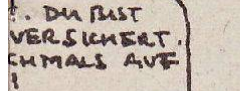 !. DU BIST
VERSICHERT.
CHMALS AUF
!